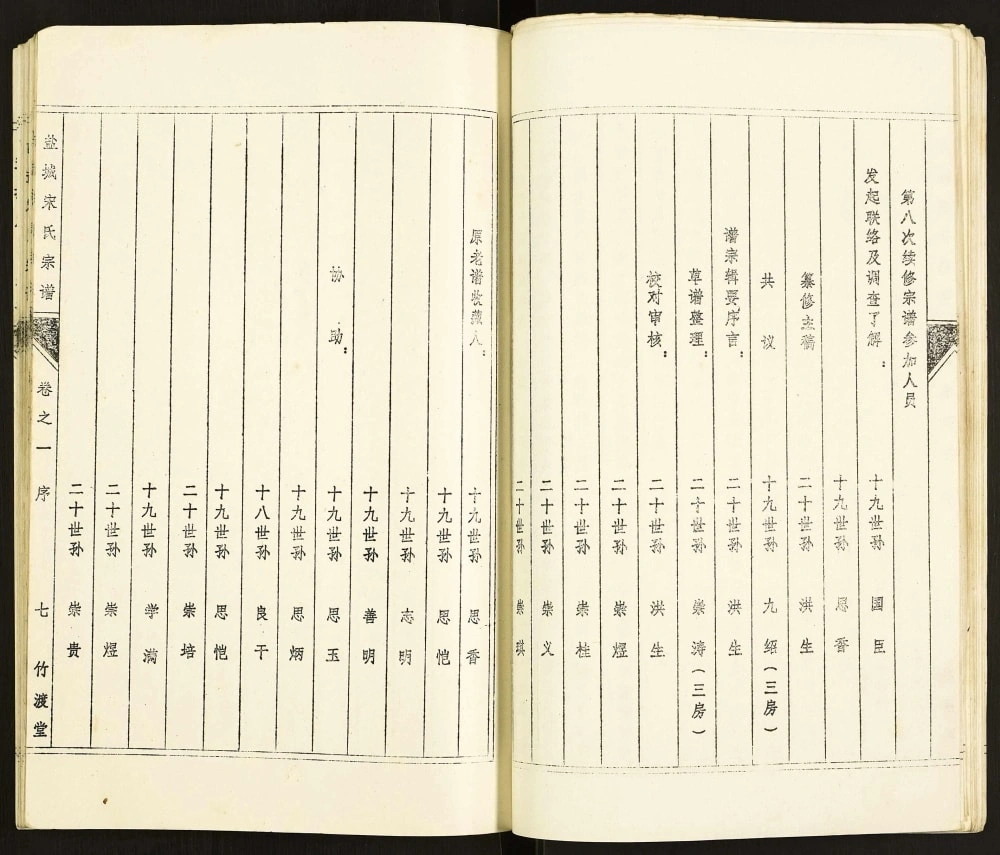 第八次续修宗谱参加人员
发起联络及调查了解： 十九世孙 国臣
十九世孙 思香
纂修主稿 二十世孙 洪生
共议 十九世孙 九绍（三房）
谱宗辑要序言： 二十世孙 洪生
草谱整理： 二十世孙 崇涛（三房）
校对审核： 二十世孙 洪生
二十世孙 崇煜
二十世孙 崇桂
二十世孙 崇义
二十世孙 崇琪
原老谱收藏人： 十九世孙 思香
十九世孙 思恺
十九世孙 志明
十九世孙 善明
协助： 十九世孙 思玉
十九世孙 思炳
十八世孙 良干
十九世孙 思恺
二十世孙 崇培
十九世孙 学满
二十世孙 崇煜
二十世孙 崇贵
盐城宋氏宗谱 卷之一 序 七 竹渡堂